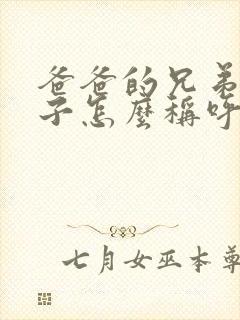 爸爸的兄弟
子怎麼稱呼
七月女巫本尊